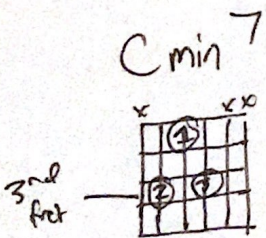 C min 7
x x x
1
2 3
3nd
fret